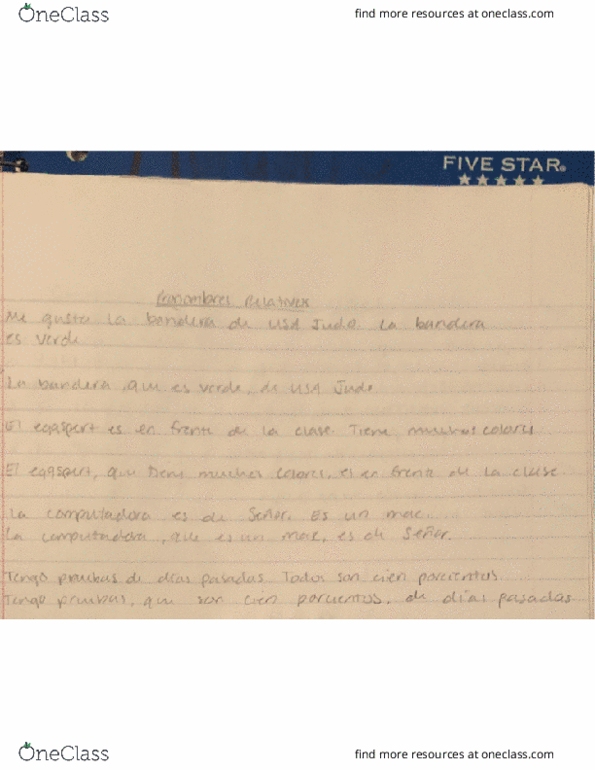 OneClass
find more resources at oneclass.com
FIVE STAR.
Pronombres Relativos
Me gusta la bandera de USA Judo. La bandera
es verde
La bandera, que es verde, de USA Judo
El es en frente de la clase. Tiene muchos colores
El que tiene muchos colores, es en frente de la clase
La computadora es de Señor. Es un mac.
La computadora, que es un mac, es de Señor.
Tengo pruebas de días pasadas. Todos son cien porcientos.
Tengo pruebas, que son cien porcientos, de días pasadas
OneClass
find more resources at oneclass.com